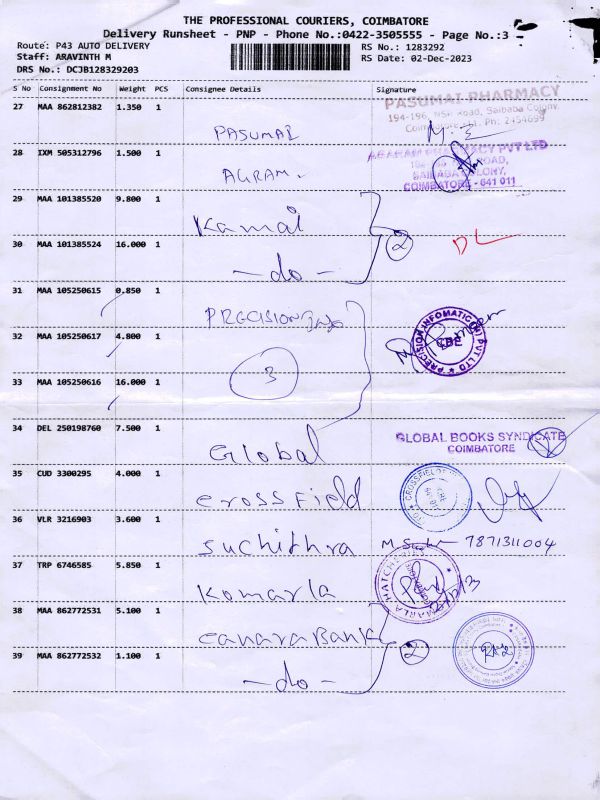 THE PROFESSIONAL COURIERS, COIMBATORE
Delivery Runsheet - PNP - Phone No.:0422-3505555 - Page No.:3
Route: P43 AUTO DELIVERY RS No.: 1283292
Staff: ARAVINTH M RS Date: 02-Dec-2023
DRS No.: DCJB128329203
S No Consignment No Weight PCS Consignee Details Signature
27 MAA 862812382 1.350 1
PASUMAI PHARMACY
194-196, NSR Road, Saibaba Colony,
PASUMAI
28 IXM 505312796 1.500 1
PHARMACY PVT LTD
ROAD,
SAIBABA COLONY,
COIMBATORE - 641 011
AGRAM.
29 MAA 101385520 9.800 1
Kamal
30 MAA 101385524 16.000 1
- do - 2 DL
31 MAA 105250615 0.850 1
PRECISION Info
32 MAA 105250617 4.800 1
PRECISION INFOMATIC (M) PVT LTD CBE
33 MAA 105250616 16.000 1
3
34 DEL 250198760 7.500 1
GLOBAL BOOKS SYNDICATE
COIMBATORE
Global
35 CUD 3300295 4.000 1
crossField
36 VLR 3216903 3.600 1
Suchithra 7871311004
37 TRP 6746585 5.850 1
Komarla
38 MAA 862772531 5.100 1
Canara Bank
39 MAA 862772532 1.100 1
- do - 2